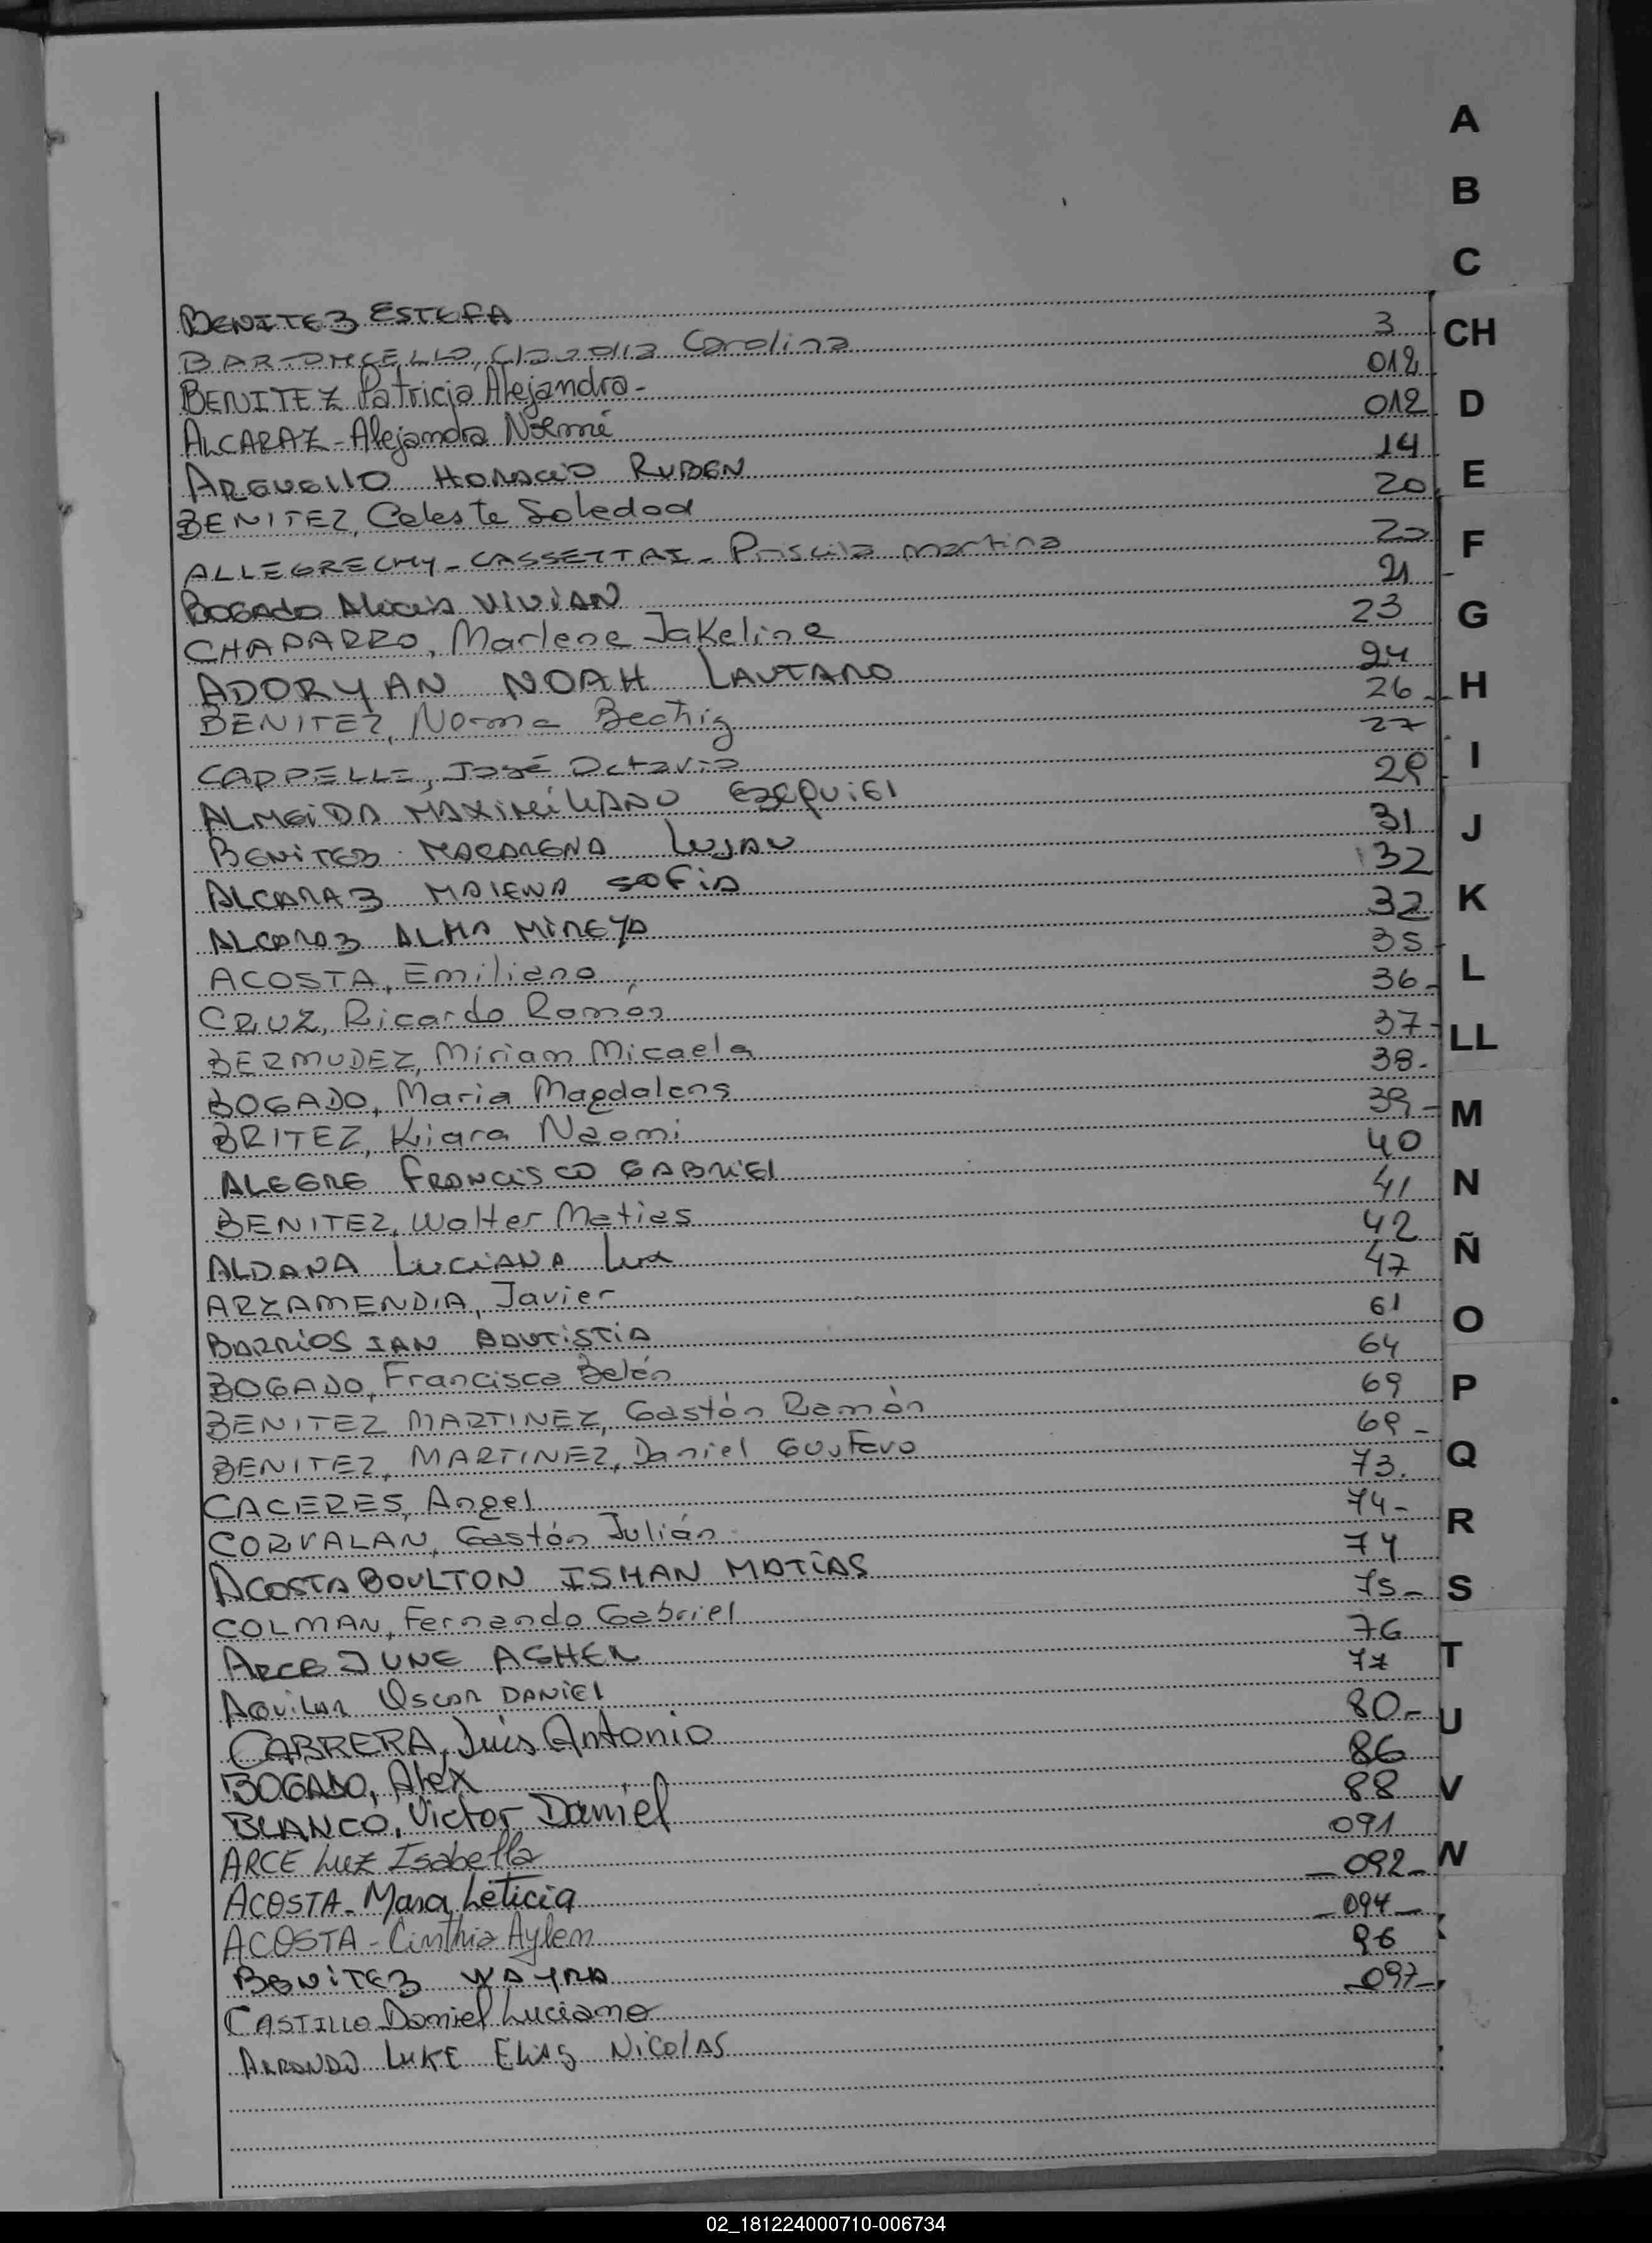 A
B
C
BENITEZ ESTEFA 3
BARTOMCELLO, Claudia Carolina 012
BENITEZ Patricia Alejandra- 012
ALCARAZ - Alejandra Noemí 14
ARGUELLO HORACIO RUBEN 20
BENITEZ, Celeste Soledad 20
ALLEGRECHY - CASSETTAI - Priscila Martina 21
BOGADO Alicia VIVIAN 23
CHAPARRO, Marlene Jakeline 24
ADORYAN NOAH LAUTARO 26
BENITEZ, Norma Beatriz 27
CAPPELLI, José Octavio 29
ALMEIDA MAXIMILIANO EZEQUIEL 31
BENITEZ MACARENA LUJAN 32
ALCARAZ MALENA SOFIA 32
ALCARAZ ALMA MIREYA 35
ACOSTA, Emiliano 36
CRUZ, Ricardo Ramón 37
BERMUDEZ, Miriam Micaela 38
BOGADO, Maria Magdalena 39
BRITEZ, Kiara Naomi 40
ALEGRE FRANCISCO GABRIEL 41
BENITEZ, Walter Matias 42
ALDANA LUCIANA Luz 47
ARZAMENDIA, Javier 61
BARRIOS IAN BAUTISTIA 64
BOGADO, Francisca Belén 69
BENITEZ MARTINEZ, Gastón Ramón 69
BENITEZ, MARTINEZ, Daniel Gustavo 73
CACERES, Angel 74
CORVALAN, Gastón Julián 74
ACOSTA BOULTON ISHAN MATIAS 75
COLMAN, Fernando Gabriel 76
ARCE JUNE ASHER 77
AQUILAR OSCAR DANIEL 80
CABRERA, Luis Antonio 86
BOGADO, Alex 88
BLANCO, Victor Daniel 091
ARCE Luz Isabella 092
ACOSTA - Mara Leticia 094
ACOSTA - Cinthia Aylen 96
BENITEZ WAYRA 097
CASTILLO Daniel Luciano
ARRONDO LUKE ELIAS NICOLAS
CH
D
E
F
G
H
I
J
K
L
LL
M
N
Ñ
O
P
Q
R
S
T
U
V
W
02_181224000710-006734